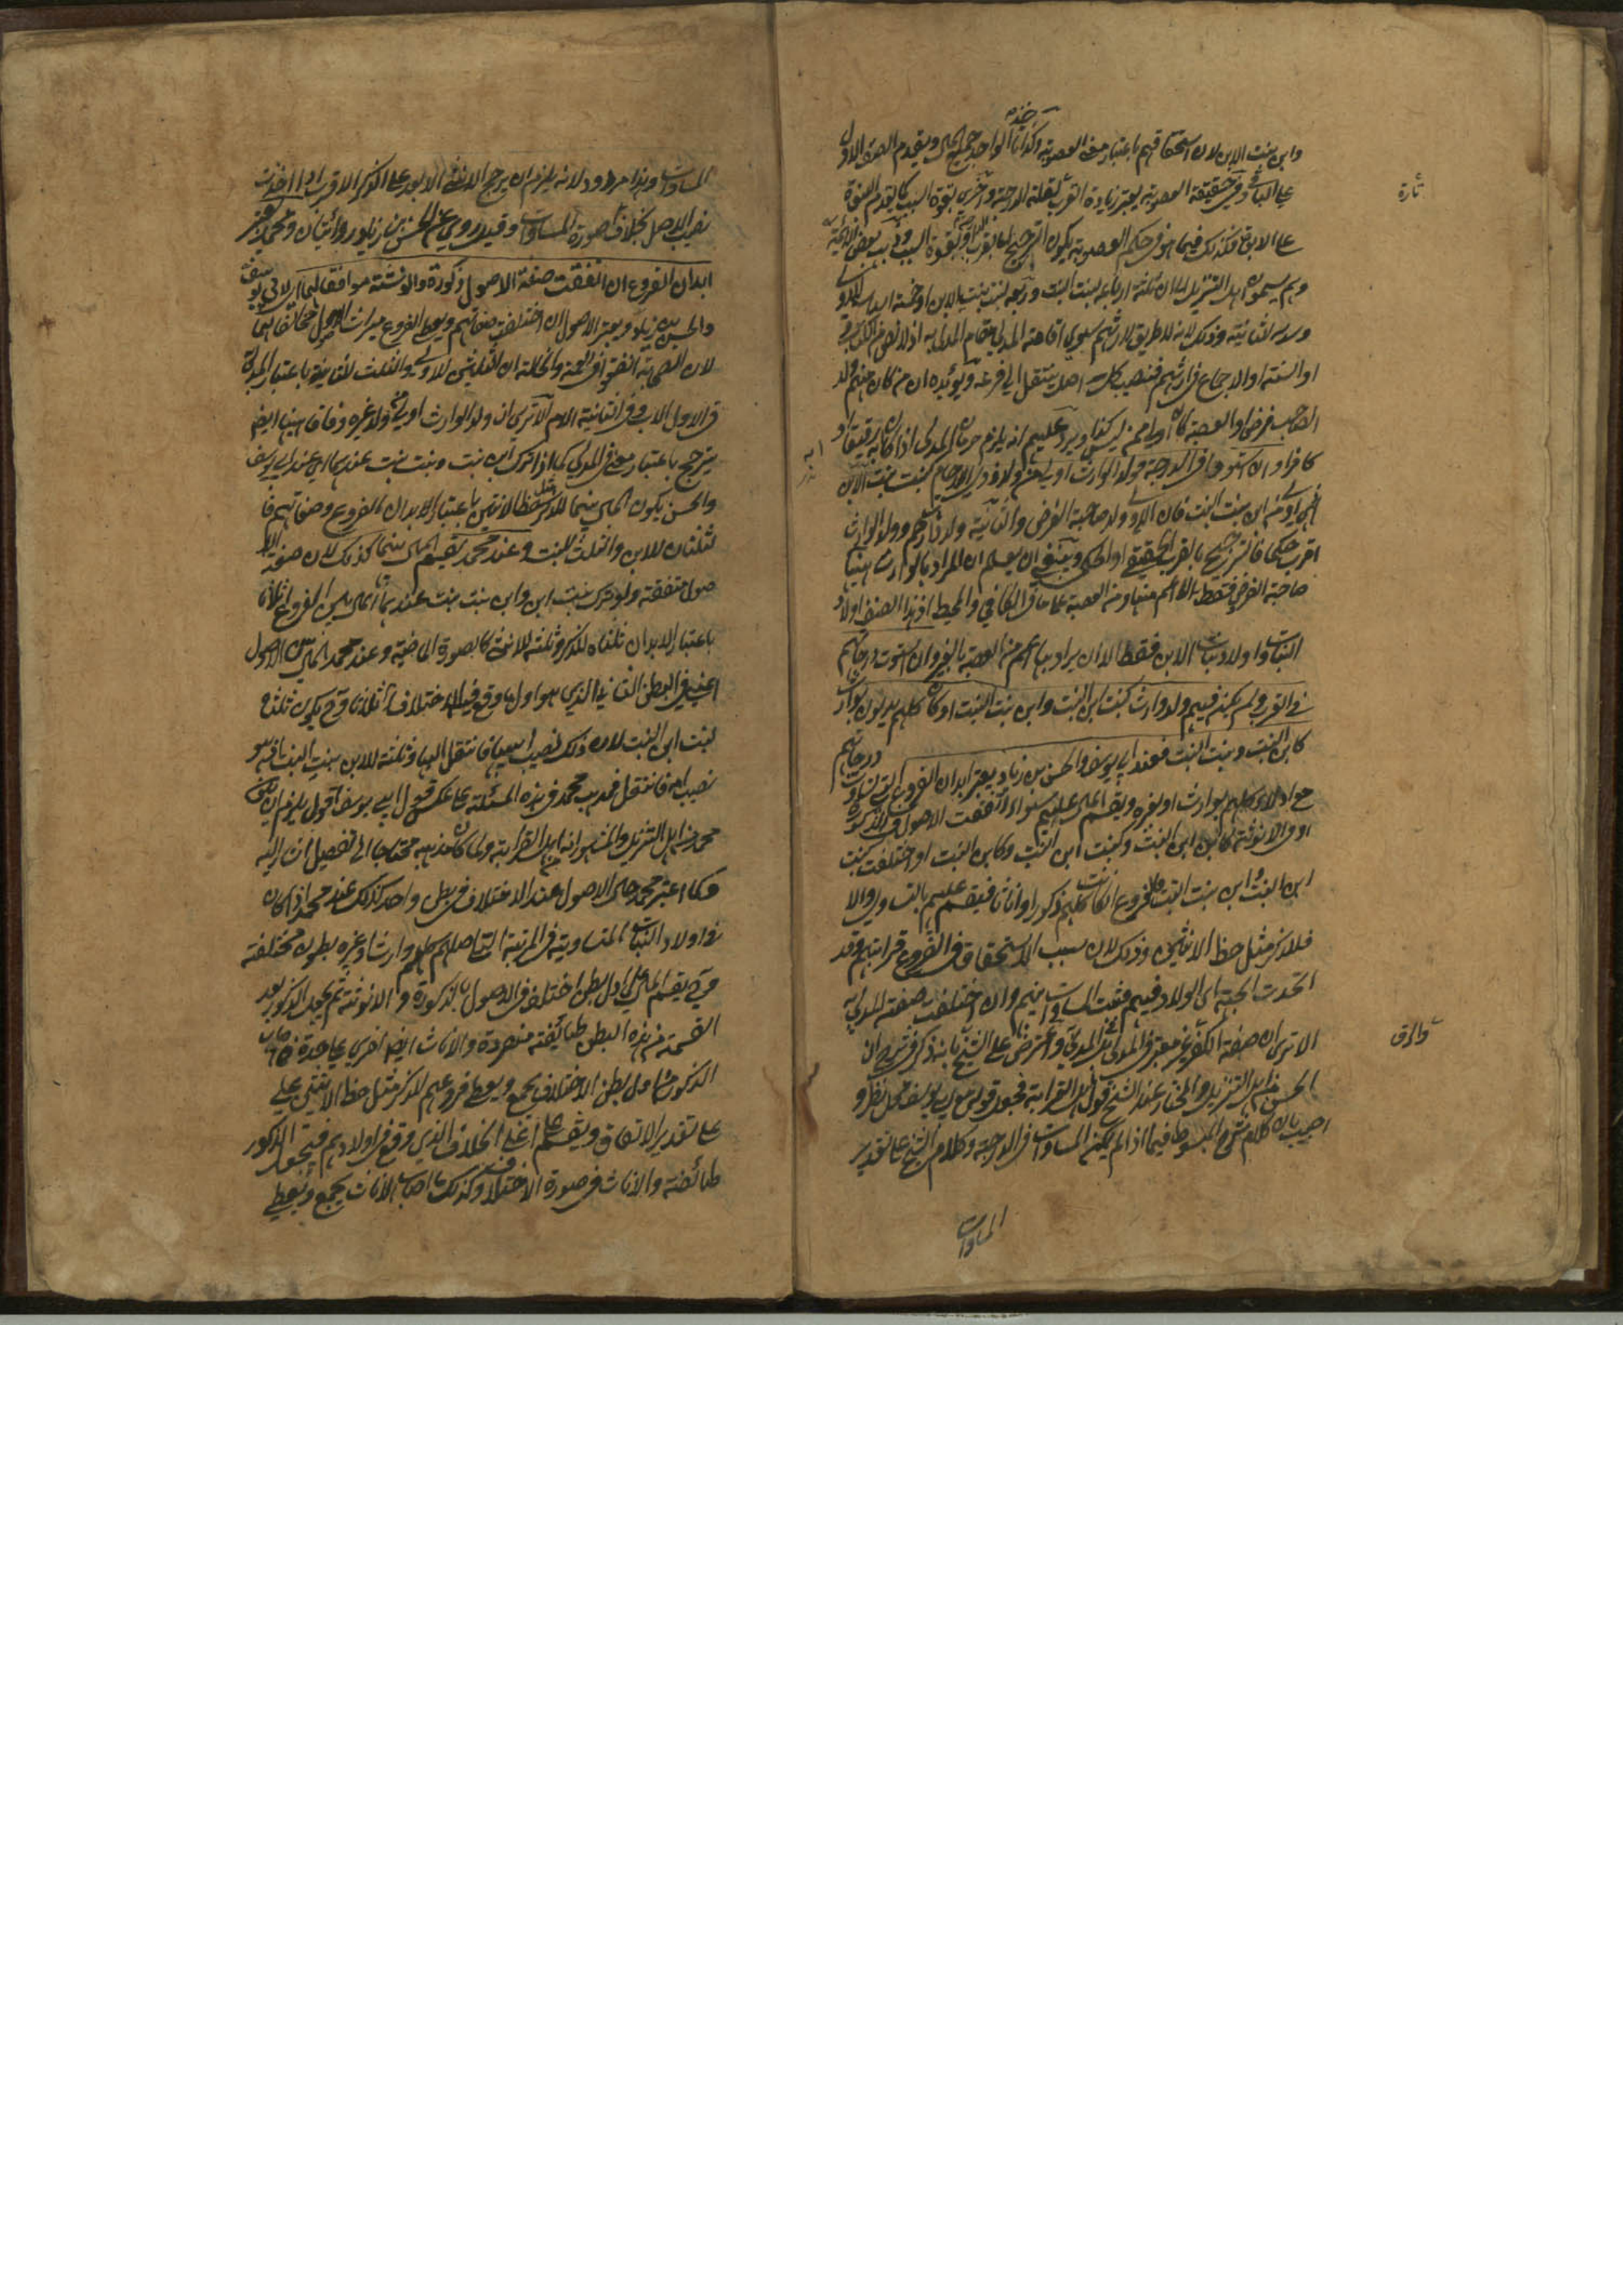 وابن بنت الابن لان استحقاقهم باعتبار معنى العصوبة ولذا الواحد جميع المال ويقدم الصنف الاول
على الباقي وفي حقيقة العصوبة يعتبر زيادة القرب لقلة الدرجة وآخرى بقوة السبب كما يقدم البنوة
تارة
على الابوة فكذلك فيما هو في حكم العصوبة يكون الترجيح اما بقرب الدرجة او بقوة السبب وفي بعض الائمة
وهم يسمون اهل التنزيل المال ثلثة ارباعه لبنت البنت وربعه لبنت بنت الابن او خمسة اسداسه للاولى
وسدسه للثانية وذلك لانه لا طريق لارثهم سوى اقامة المدلى مقام المدلى به اذ لا نص من الكتاب
او السنة او الاجماع في ارثهم فنصيب كل اصل ينتقل الى فرعه ويؤيده ان من كان منهم ولد
لصاحب فرض او العصبة كان اولى ممن ليس كذا ويرد عليهم انه يلزم حرمان المدلي اذا كان رقيقا او
كافرا وان استووا في الدرجة فولد الوارث اولى من ولد ذوي الارحام كبنت بنت الابن
فهي اولى من ابن بنت البنت فان الاولى ولد صاحبة الفرض والثانية ولد ذات رحم وولد الوارث
اقرب حكما فالترجيح بالقرب الحقيقي او الحكمي وينبغي ان يعلم ان المراد بالوارث هنا
صاحبة الفرض فقط لا الاعم منها ومن العصبة على ما في الكافي والمحيط اذ هذا الصنف اولاد
البنات واولاد بنات الابن فقط الا ان يراد بها اعم من العصبة بالغير وان استوت درجاتهم
في القرب ولم يكن فيهم ولد وارث كبنت ابن البنت وابن بنت البنت او كان كلهم يدلون بوارث
كابن البنت وبنت البنت فعند ابي يوسف والحسن بن زياد يعتبر ابدان الفروع المتساوية
درجاتهم
مع ادلاء كلهم بوارث او بغيره ويقسم المال عليهم سواء اتفقت الاصول في الذكورة
او الانوثة كابن ابن البنت وكبنت ابن البنت وكابن البنت او اختلفت كبنت
ابن البنت وابن بنت البنت فالفروع ان كانت كلهم ذكورا او اناثا فيقسم عليهم بالتساوي والا
فللذكر مثل حظ الانثيين وذلك لان سبب الاستحقاق في الفروع قرابتهم وقد
اتحدت الجهة اي الولاد فيهم فثبت المساوات بينهم وان اختلفت صفة المدلى به
الا ترى ان صفة الكفر غير معتبر في المدلى به واعترض على الشيخ بانه ذكر في شرح ان
والرق
الحسن من اهل التنزيل والمختار عند الشيخ قول اهل القرابة فجعل قوله كقول ابي يوسف محل نظر و
اجيب بان كلام شرح المبسوط فيما اذا لم يكن المساوات في الدرجة وكلام الشيخ على تقدير
المساوات
المساوات وهذا مردود لانه يلزم ان يرجح الانثى الابعد على الذكر الاقرب اذا اخذت
نصيب الاصل بخلاف صورة المساوات وقيل روي عن الحسن بن زياد روايتان ومحمد يعتبر
ابدان الفروع ان اتفقت صفة الاصول ذكورة والانوثة موافقا لهما اي لابي يوسف
والحسن بن زياد ويعتبر الاصول ان اختلفت صفاتهم ويعطي الفروع ميراث الاصول مخالفا لهما
لان الصحابة اتفقوا في العمة والخالة ان الثلثين للاولى والثلث للثانية باعتبار المدلى به
في الاول الاب وفي الثانية الام الا ترى ان ولد الوارث اولى من ولد غيره وفاقا بينهما ايضا
يترجح باعتبار معنى في المدلى كما اذا ترك ابن بنت وبنت بنت عندهما اي عند ابي يوسف
والحسن يكون المال بينهما للذكر مثل حظ الانثيين باعتبار الابدان الفروع وصفاتهم فا
لثلثان للابن والثلث للبنت وعند محمد يقسم المال بينهما كذلك لان صفة الا
صول متفقة ولو ترك بنت ابن وابن بنت بنت عندهما المال بين الفروع اثلاثا
باعتبار الابدان ثلثاه للذكر وثلثه للانثى كالصورة الماضية وعند محمد المال بين الاصول
اعني في البطن الثاني الذي هو اول ما وقع فيه الاختلاف اثلاثا وح يكون ثلثاه
لبنت ابن البنت لان ذلك نصيب ابيها فانتقل اليها وثلثه للابن بنت البنت فانه
نصيب امه فانتقل فمذهب محمد في هذه المسئلة على عكس قول ابي يوسف اقول يلزم ان يكون
محمد من اهل التنزيل والمشهور انه من اهل القرابة ولما كان مذهبه محتاجا الى تفصيل اشار اليه
فكما اعتبر محمد حال الاصول عند الاختلاف في بطن واحد كذلك عند محمد اذا كان
في اولاد البنات المتساوية في المرتبة التي اصلهم كلهم وارث او غيره بطون مختلفة
وح يقسم المال على اول بطن اختلف في الاصول بالذكورة والانوثة ثم يجعل الذكور بعد
القسمة من هذه البطن طائفة منفردة والاناث ايضا اخرى على حدة فما اصاب
الذكور من اول بطن الاختلاف يجمع ويعطى فروعهم للذكر مثل حظ الانثيين على
على تقدير الاتفاق ويقسم على اعلى الخلاف الذي وقع في اولادهم فيجعل الذكور
طائفة والاناث في صورة الاختلاف وكذلك ما اصاب الاناث يجمع ويعطى